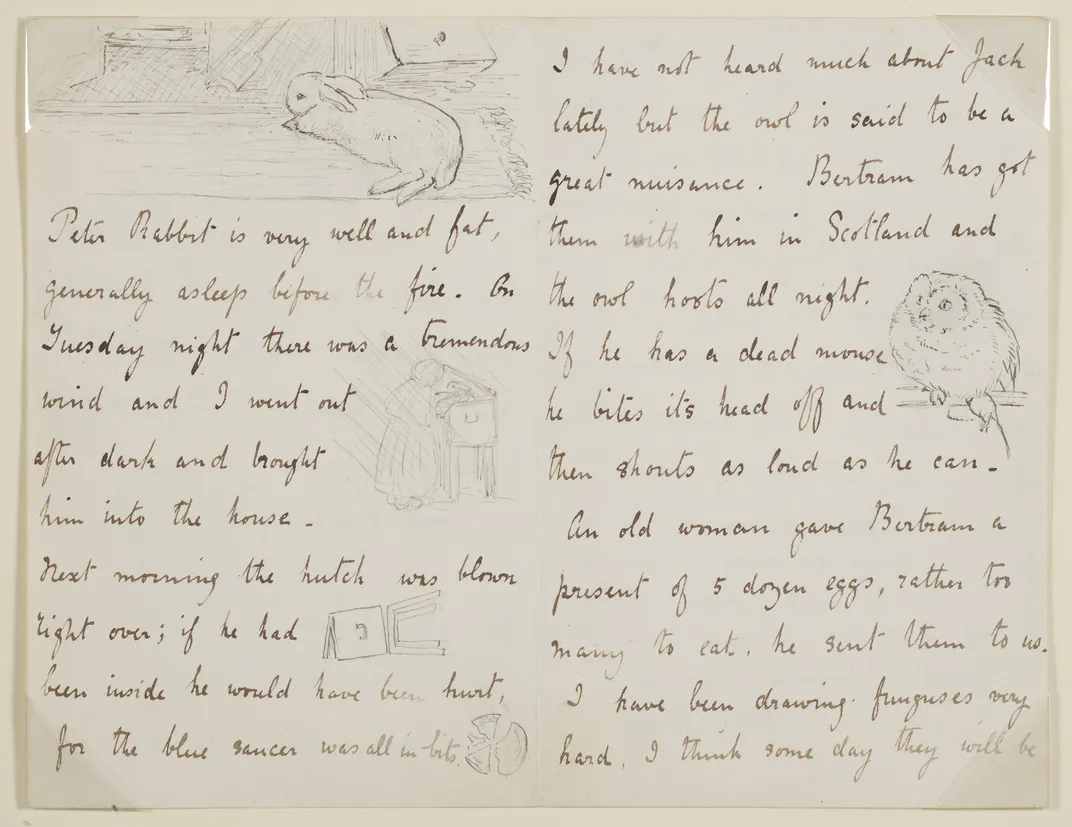 10
Peter Rabbit is very well and fat,
generally asleep before the fire. On
Tuesday night there was a tremendous
wind and I went out
after dark and brought
him into the house -
Next morning the hutch was blown
right over; if he had
been inside he would have been hurt,
for the blue saucer was all in bits.
I have not heard much about Jack
lately but the owl is said to be a
great nuisance. Bertram has got
them with him in Scotland and
the owl hoots all night.
If he has a dead mouse
he bites its head off and
then shouts as loud as he can -
An old woman gave Bertram a
present of 5 dozen eggs, rather too
many to eat. he sent them to us.
I have been drawing funguses very
hard, I think some day they will be